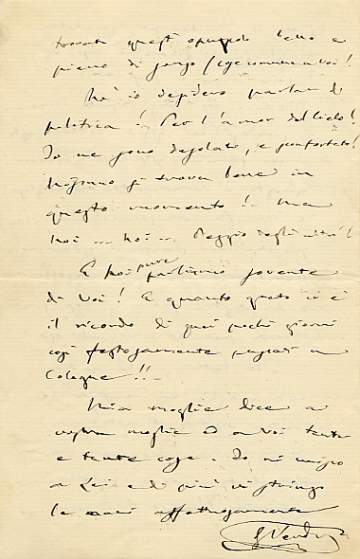 trovate quest'
pieno di
Nè io desidero parlar di
politica! Per l'amor del cielo!
Io ne sono desolato, e sconfortato!
Nessuno si trova bene in
questo momento! Ma
noi ... noi ... Peggio degli altri!
E noi pure parliamo sovente
di Voi! E quanto grato ci è
il ricordo di quei pochi giorni
così festosamente passati a
Cologne!!
Mia moglie dice a
vostra moglie ed a voi tante
e tante cose. Io mi unisco
a Lei e di più vi stringo
le mani affettuosamente
G Verdi